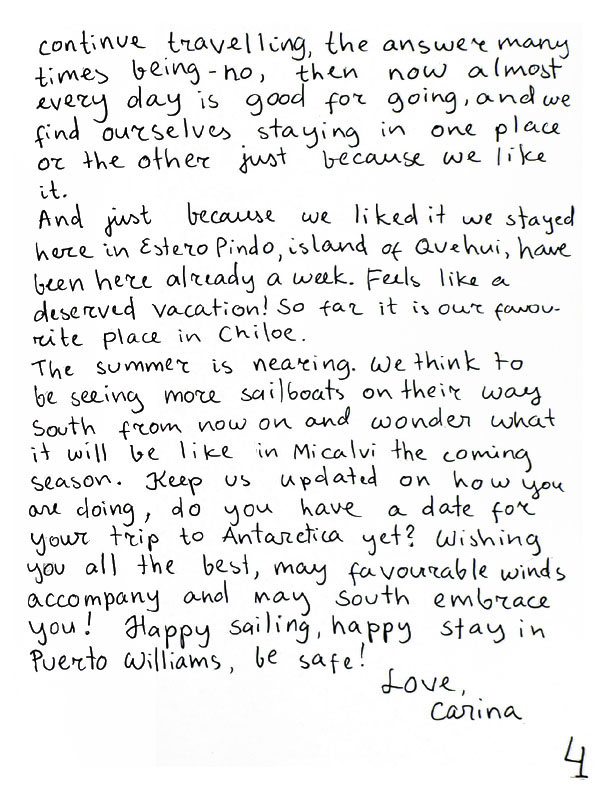 continue travelling, the answer many
times being - no, then now almost
every day is good for going, and we
find ourselves staying in one place
or the other just because we like
it.
And just because we liked it we stayed
here in Estero Pindo, island of Quehui, have
been here already a week. Feels like a
deserved vacation! So far it is our favou-
rite place in Chiloe.
The summer is nearing. We think to
be seeing more sailboats on their way
South from now on and wonder what
it will be like in Micalvi the coming
season. Keep us updated on how you
are doing, do you have a date for
your trip to Antarctica yet? Wishing
you all the best, may favourable winds
accompany and may South embrace
you! Happy sailing, happy stay in
Puerto Williams, be safe!
Love,
Carina
4